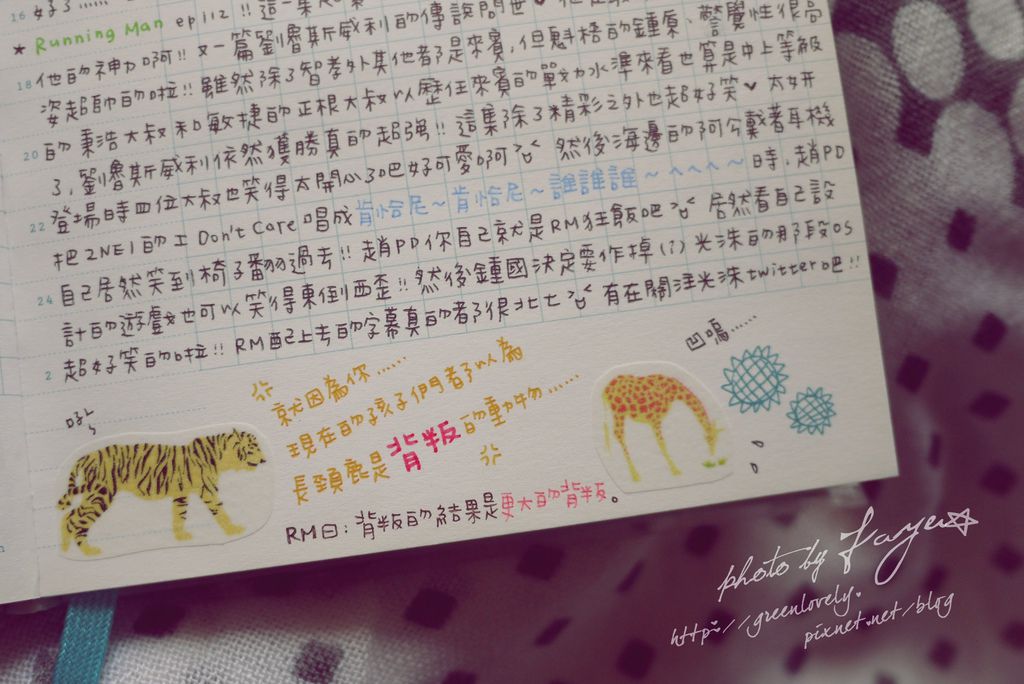 16 好了
★ Running Man ep112 !! 這一集
18 他的神力啊!! 又一篇劉魯斯威利的傳說問世♥
姿超帥的啦!! 雖然除了智孝外其他都是來賓,但魁梧的鍾原、警覺性很高
20 的秉浩大叔和敏捷的正根大叔以歷任來賓的戰力水準來看也算是中上等級
了,劉魯斯威利依然獲勝真的超強!! 這集除了精彩之外也超好笑♥ 太好
22 登場時四位大叔也笑得太開心了吧好可愛啊 然後海邊的阿公戴著耳機
把2NE1的 I Don't Care 唱成肯恰尼~肯恰尼~誰誰誰~へへへ~時,趙PD
24 自己居然笑到椅子翻過去!! 趙PD你自己就是RM狂飯吧 居然看自己設
計的遊戲也可以笑得東倒西歪!! 然後鍾國決定要作掉(?)光洙的那段OS
2 超好笑的啦!! RM配上去的字幕真的都很北七 有在關注光洙twitter吧!!
就因為你......
現在的孩子們都以為
長頸鹿是背叛的動物......
凹嗚......
RM曰:背叛的結果是更大的背叛。
photo by Faye☆
http://greenlovely.
pixnet.net/blog